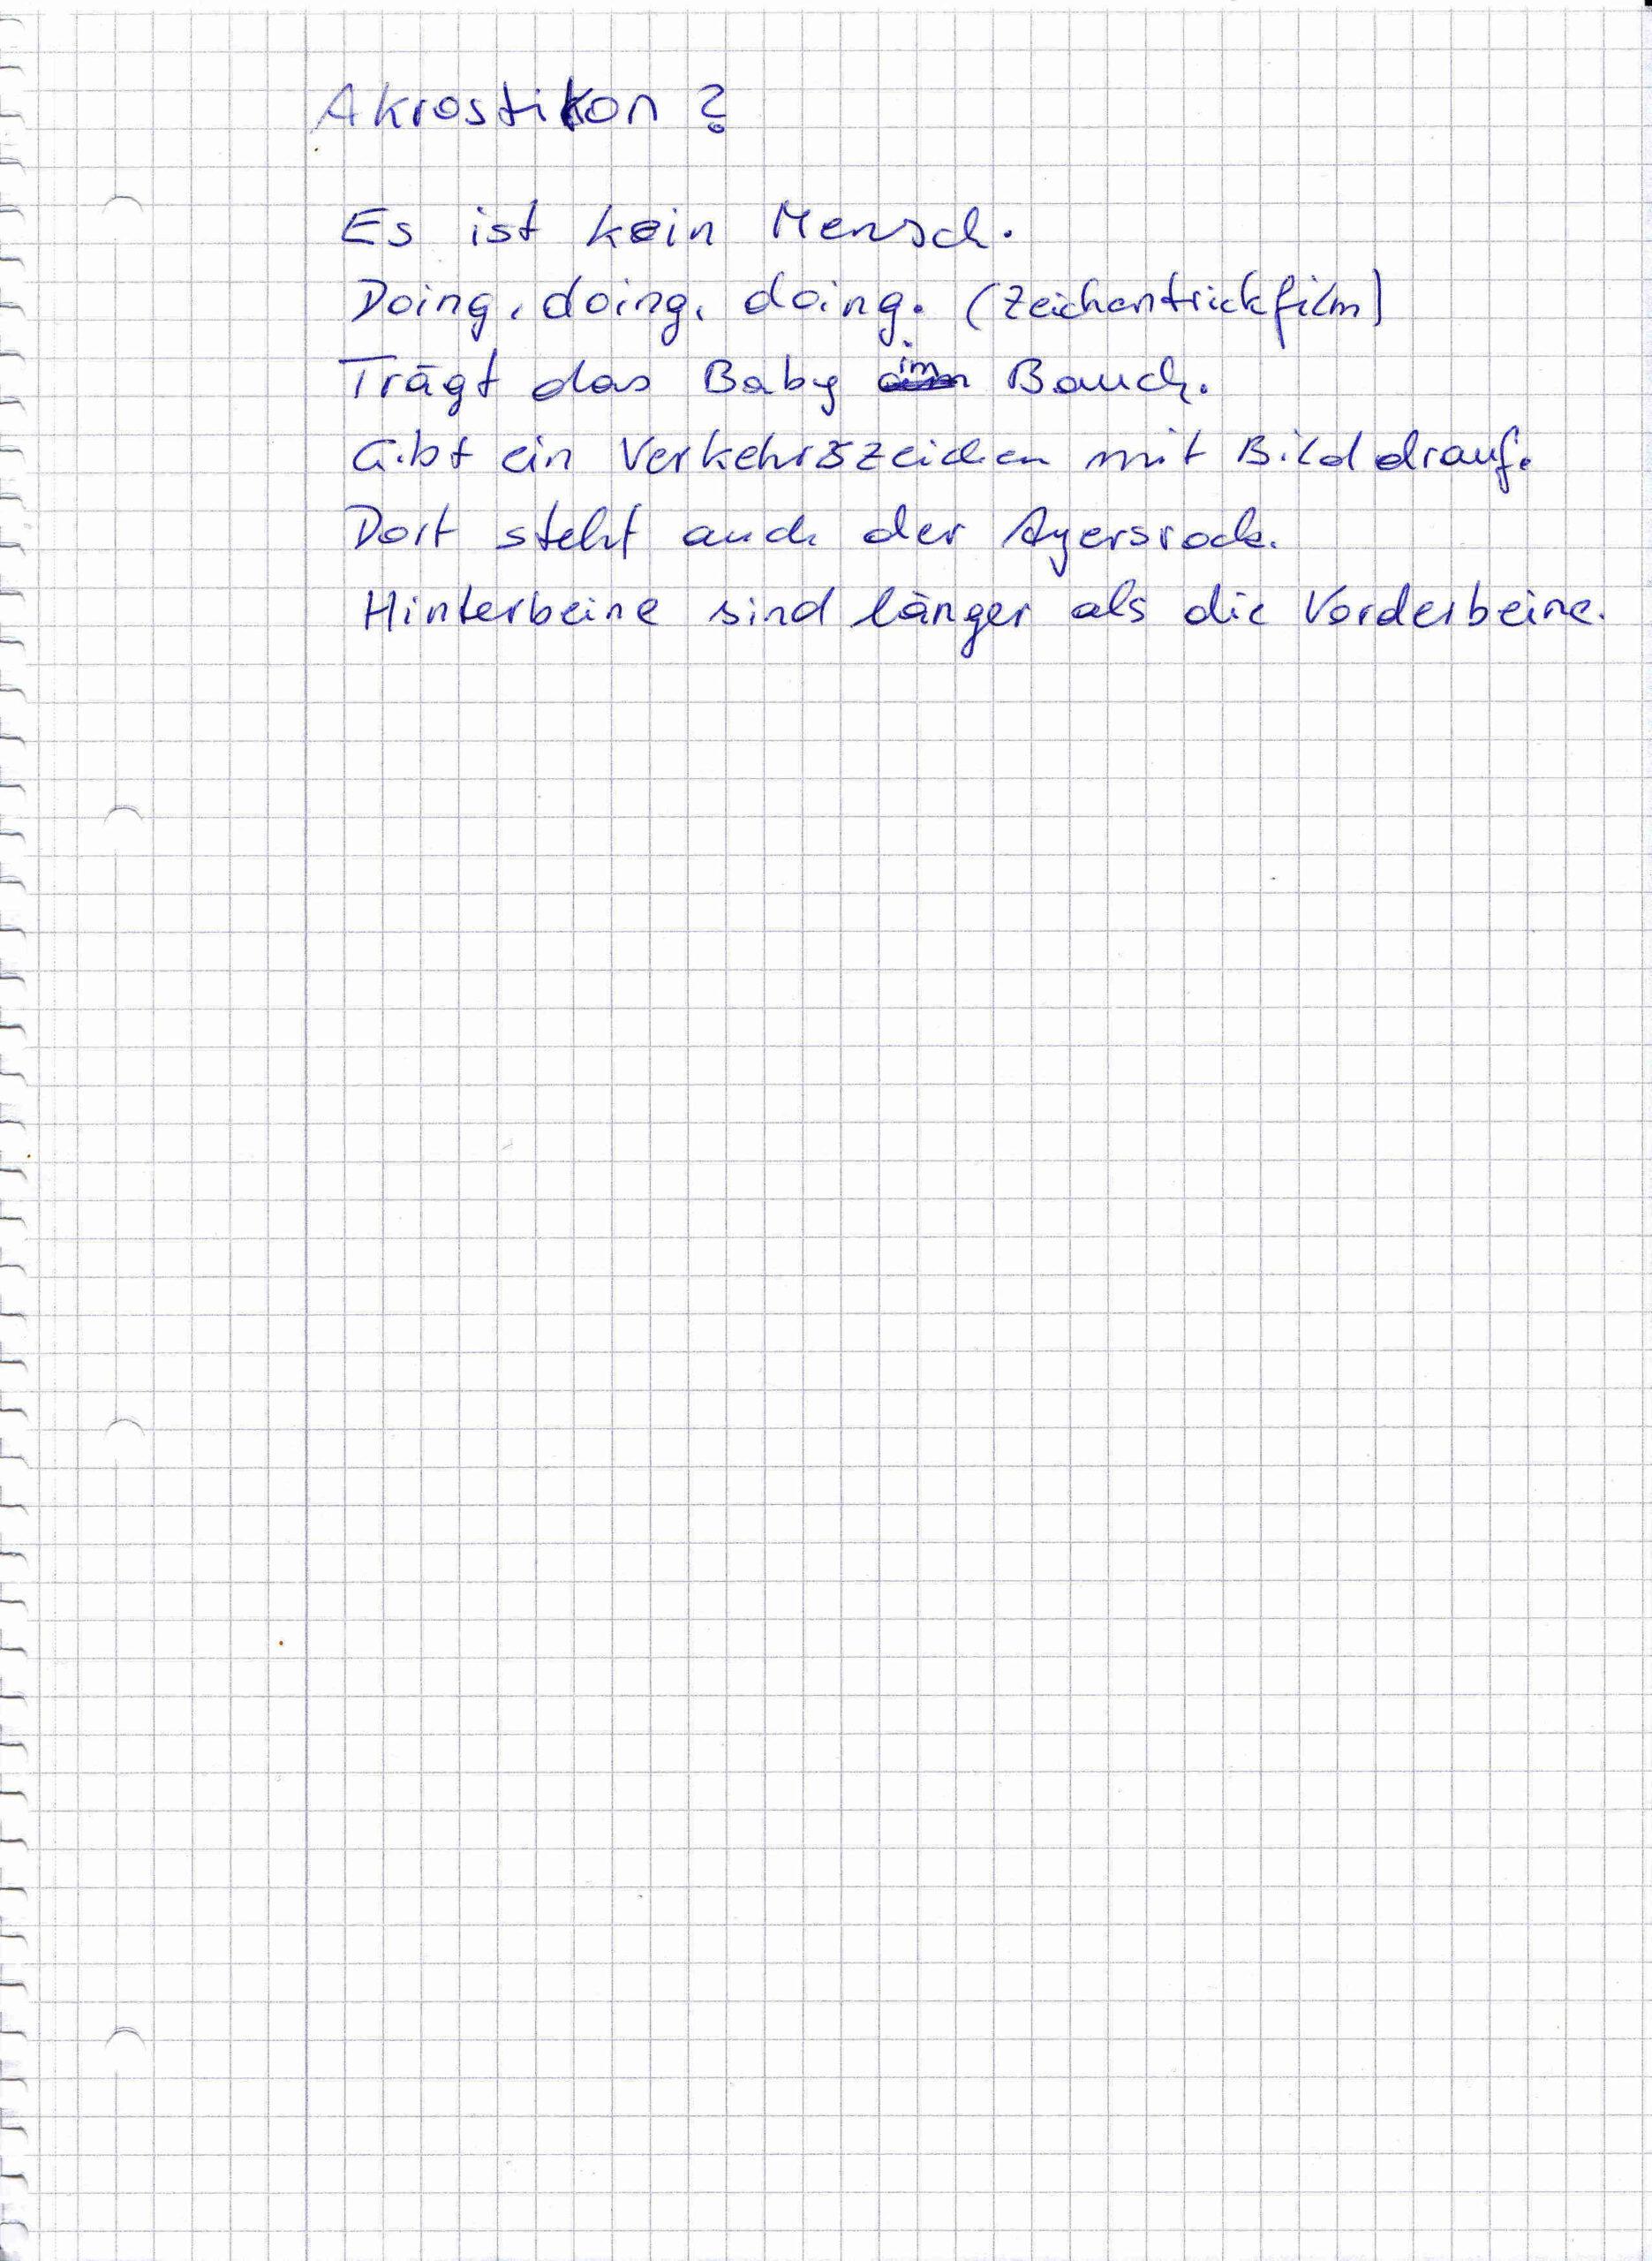 Akrostikon?
Es ist kein Mensch.
Doing, doing, doing. (Zeichentrickfilm)
Trägt das Baby im Bauch.
Gibt ein Verkehrszeichen mit Bild drauf.
Dort steht auch der Ayersrock.
Hinterbeine sind länger als die Vorderbeine.